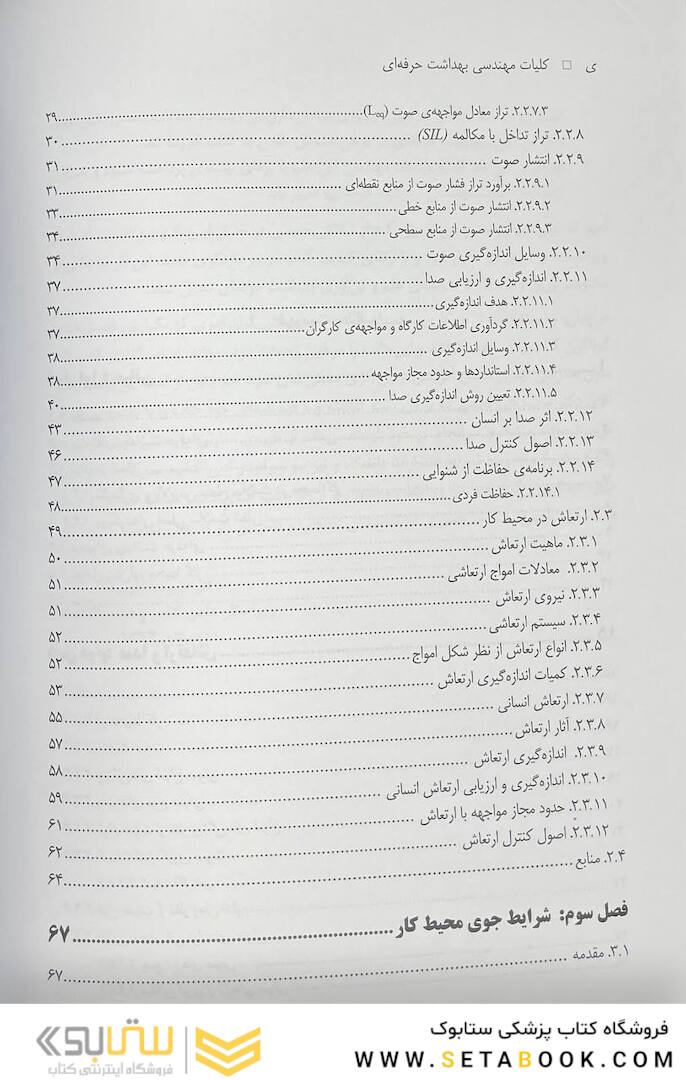 ی □ کلیات مهندسی بهداشت حرفه‌ای
۲.۲.۷.۳. تراز معادل مواجهه‌ی صوت (Leq)................۲۹
۲.۲.۸. تراز تداخل با مکالمه (SIL)................۳۰
۲.۲.۹. انتشار صوت................۳۱
۲.۲.۹.۱. برآورد تراز فشار صوت از منابع نقطه‌ای................۳۱
۲.۲.۹.۲. انتشار صوت از منابع خطی................۳۳
۲.۲.۹.۳. انتشار صوت از منابع سطحی................۳۴
۲.۲.۱۰. وسایل اندازه‌گیری صوت................۳۴
۲.۲.۱۱. اندازه‌گیری و ارزیابی صدا................۳۷
۲.۲.۱۱.۱. هدف اندازه‌گیری................۳۷
۲.۲.۱۱.۲. گردآوری اطلاعات کارگاه و مواجهه‌ی کارگران................۳۷
۲.۲.۱۱.۳. وسایل اندازه‌گیری................۳۸
۲.۲.۱۱.۴. استانداردها و حدود مجاز مواجهه................۳۸
۲.۲.۱۱.۵. تعیین روش اندازه‌گیری صدا................۴۰
۲.۲.۱۲. اثر صدا بر انسان................۴۳
۲.۲.۱۳. اصول کنترل صدا................۴۶
۲.۲.۱۴. برنامه‌ی حفاظت از شنوایی................۴۷
۲.۲.۱۴.۱. حفاظت فردی................۴۸
۲.۳. ارتعاش در محیط کار................۴۹
۲.۳.۱. ماهیت ارتعاش................۵۰
۲.۳.۲. معادلات امواج ارتعاشی................۵۱
۲.۳.۳. نیروی ارتعاش................۵۱
۲.۳.۴. سیستم ارتعاشی................۵۲
۲.۳.۵. انواع ارتعاش از نظر شکل امواج................۵۲
۲.۳.۶. کمیات اندازه‌گیری ارتعاش................۵۳
۲.۳.۷. ارتعاش انسانی................۵۵
۲.۳.۸. آثار ارتعاش................۵۷
۲.۳.۹. اندازه‌گیری ارتعاش................۵۸
۲.۳.۱۰. اندازه‌گیری و ارزیابی ارتعاش انسانی................۵۹
۲.۳.۱۱. حدود مجاز مواجهه با ارتعاش................۶۱
۲.۳.۱۲. اصول کنترل ارتعاش................۶۲
۲.۴. منابع................۶۴
فصل سوم: شرایط جوی محیط کار................۶۷
۳.۱. مقدمه................۶۷
فروشگاه کتاب پزشکی ستابوک
WWW.SETABOOK.COM
ستابوک
فروشگاه اینترنتی کتاب